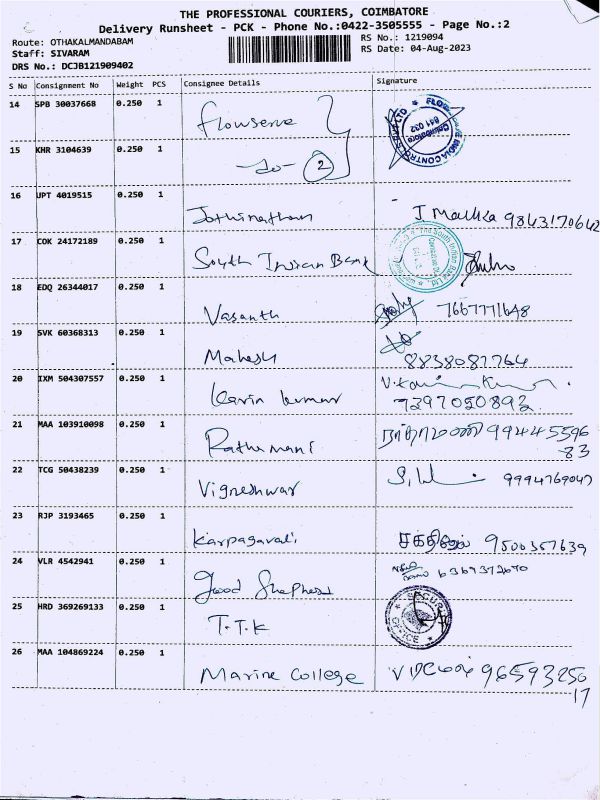 THE PROFESSIONAL COURIERS, COIMBATORE
Delivery Runsheet - PCK - Phone No.:0422-3505555 - Page No.:2
Route: OTHAKALMANDABAM
RS No.: 1219094
Staff: SIVARAM
RS Date: 04-Aug-2023
DRS No.: DCJB121909402
S No Consignment No Weight PCS Consignee Details Signature
14 SPB 30037668 0.250 1 Flowserve
15 KHR 3104639 0.250 1 -do- 2
16 JPT 4019515 0.250 1 Jothinathan J 9843170642
17 COK 24172189 0.250 1 South Indian Bank
18 EDQ 26344017 0.250 1 Vasanth 7667771648
19 SVK 60368313 0.250 1 Mahesh 8838087764
20 IXM 504307557 0.250 1 Kavin kumar 7397050892
21 MAA 103910098 0.250 1 Rathimani 9944559683
22 TCG 50438239 0.250 1 Vigneshwar 9994769047
23 RJP 3193465 0.250 1 Karpagavalli 9500357639
24 VLR 4542941 0.250 1 Good Shepherd 6369372670
25 HRD 369269133 0.250 1 T.T.K SECURITY OFFICE
26 MAA 104869224 0.250 1 Marine College 9659325617